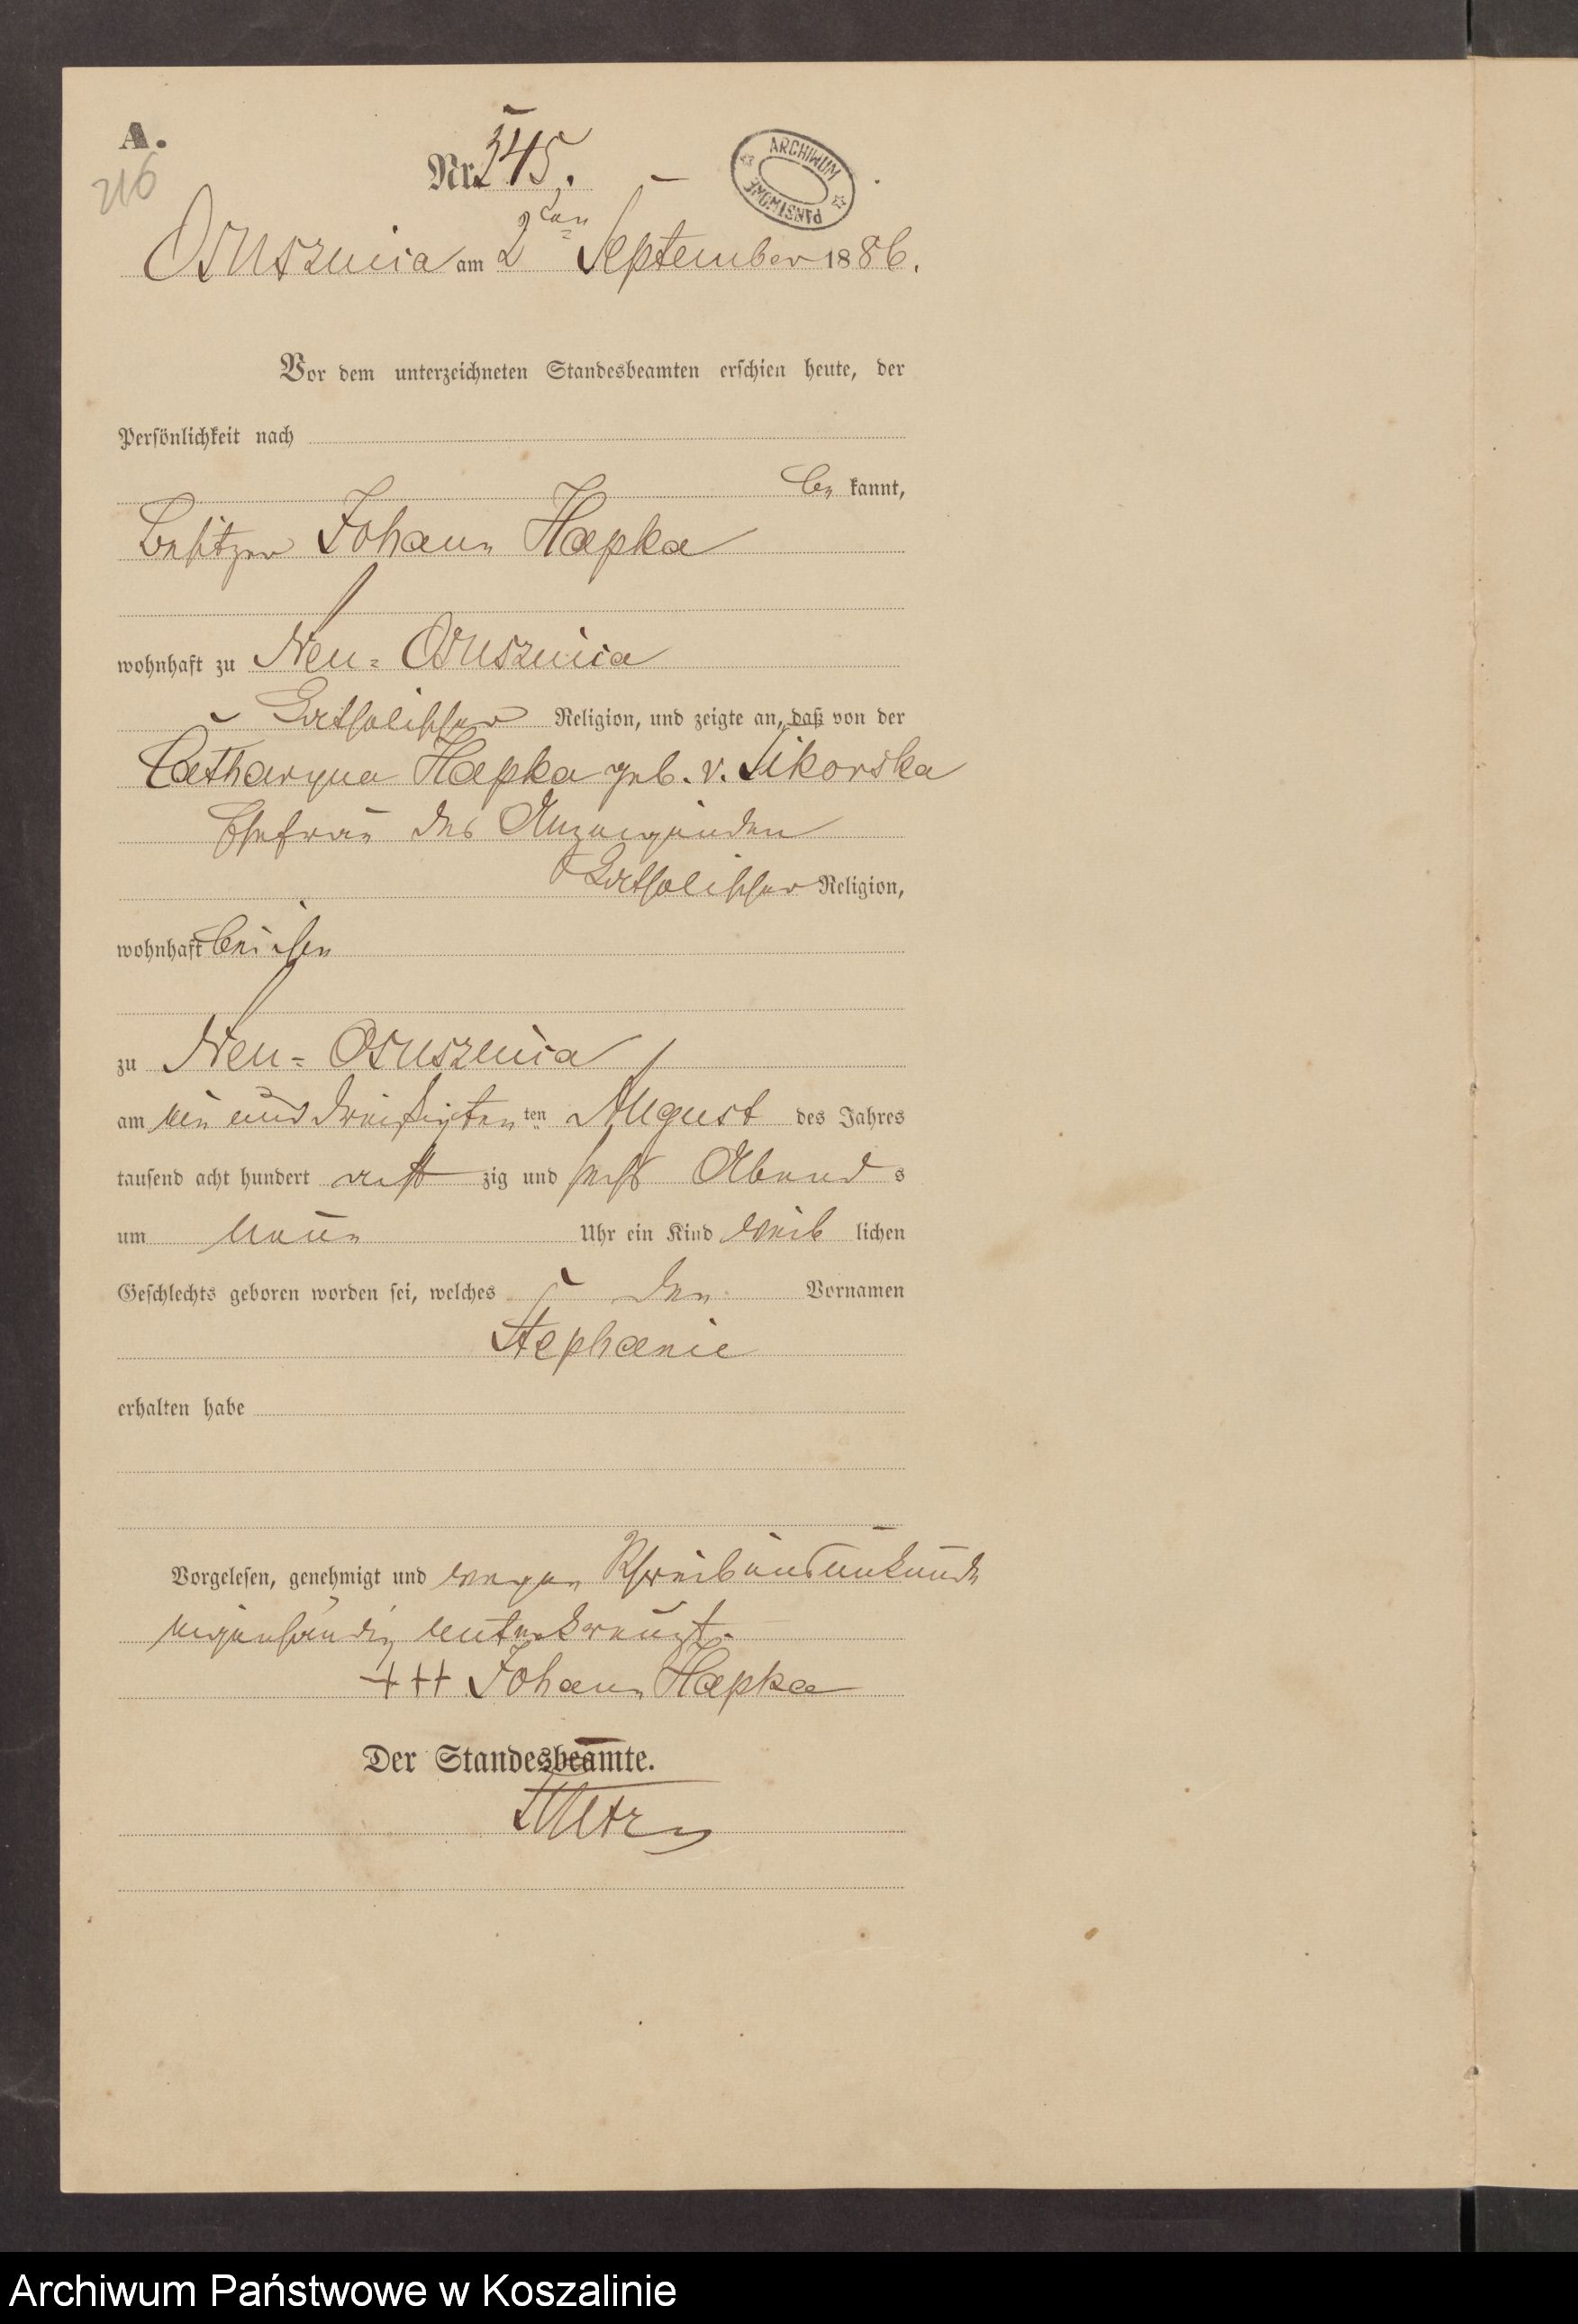 A.
216
Nr. 345.
ARCHIWUM PAŃSTWOWE
Osusznica am 2ten September 1886.
Vor dem unterzeichneten Standesbeamten erschien heute, der
Persönlichkeit nach
be kannt,
Besitzer Johann Hapka
wohnhaft zu Neu-Osusznica
katholischer Religion, und zeigte an, daß von der
Catharyna Hapka geb. v. Sikorska
Ehefrau des Anzeigenden
katholischer Religion,
wohnhaft bei ihm
zu Neu-Osusznica
am ein und dreißigsten ten August des Jahres
tausend acht hundert acht zig und sechs Abend s
um neun Uhr ein Kind weib lichen
Geschlechts geboren worden sei, welches den Vornamen
Stephanie
erhalten habe
Vorgelesen, genehmigt und wegen Schreibensunkunde
eigenhändig unterkreuzt.
+++ Johann Hapka
Der Standesbeamte.
Archiwum Państwowe w Koszalinie